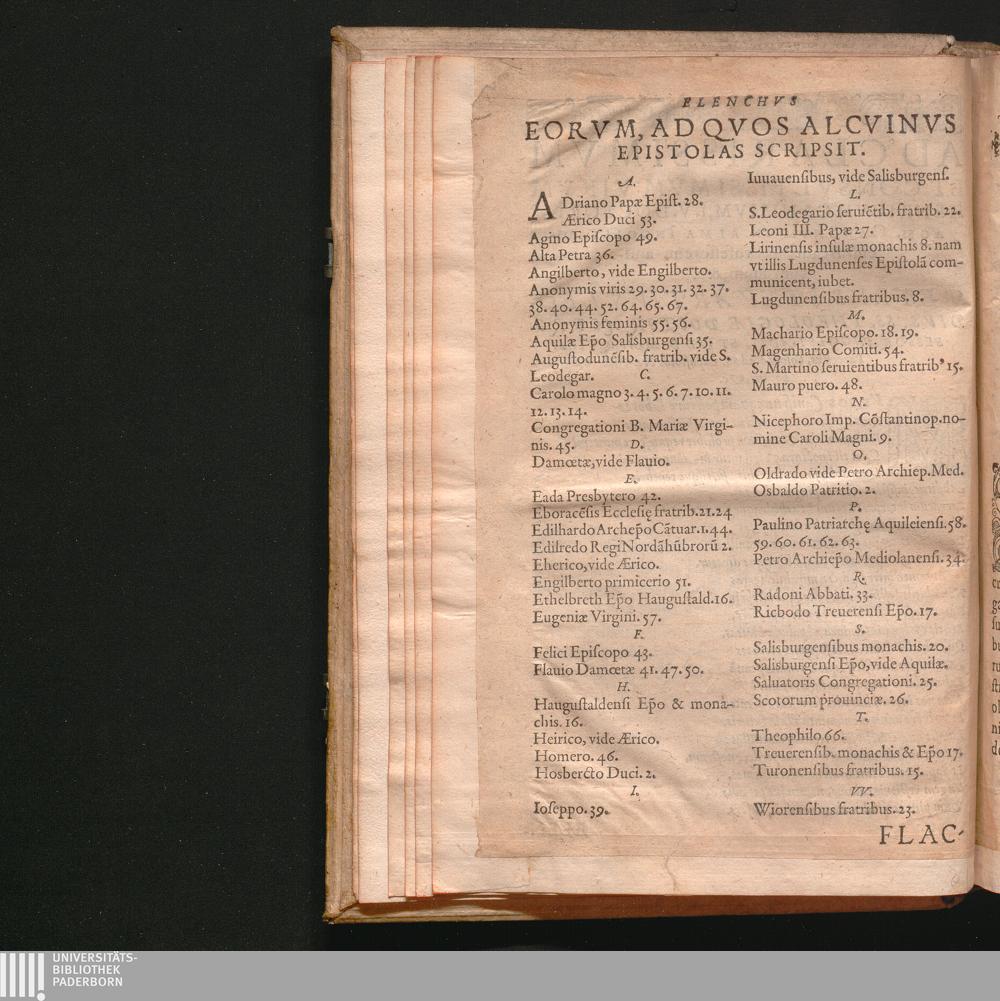 ELENCHVS
EORVM, AD QVOS ALCVINVS
EPISTOLAS SCRIPSIT.
A.
ADriano Papæ Epiſt. 28.
Ærico Duci 53.
Agino Epiſcopo 49.
Alta Petra 36.
Angilberto, vide Engilberto.
Anonymis viris 29. 30. 31. 32. 37.
38. 40. 44. 52. 64. 65. 67.
Anonymis feminis 55. 56.
Aquilæ Ep̃o Salisburgenſi 35.
Auguſtodunēſib. fratrib. vide S.
Leodegar. C.
Carolo magno 3. 4. 5. 6. 7. 10. 11.
12. 13. 14.
Congregationi B. Mariæ Virgi-
nis. 45. D.
Damœtæ, vide Flauio.
E.
Eada Presbytero 42.
Eboracēſis Eccleſię fratrib. 21. 24
Edilhardo Archep̃o Cãtuar. 1. 44.
Edilredo Regi Nordãhũbrorũ 2.
Eherico, vide Ærico.
Engilberto primicerio 51.
Ethelbreth Ep̃o Hauguſtald. 16.
Eugeniæ Virgini. 57.
F.
Felici Epiſcopo 43.
Flauio Damœtæ 41. 47. 50.
H.
Hauguſtaldenſi Ep̃o & mona-
chis. 16.
Heirico, vide Ærico.
Homero. 46.
Hosbercto Duci. 2.
I.
Ioſeppo. 39.
Iuuauenſibus, vide Salisburgenſ.
L.
S. Leodegario ſeruiẽtib. fratrib. 22.
Leoni III. Papæ 27.
Lirinenſis inſulæ monachis 8. nam
vt illis Lugdunenſes Epiſtolã com-
municent, iubet.
Lugdunenſibus fratribus. 8.
M.
Machario Epiſcopo. 18. 19.
Magenhario Comiti. 54.
S. Martino ſeruientibus fratrib' 15.
Mauro puero. 48.
N.
Nicephoro Imp. Cõſtantinop. no-
mine Caroli Magni. 9.
O.
Oldrado vide Petro Archiep. Med.
Osbaldo Patritio. 2.
P.
Paulino Patriarchę Aquileienſi. 58.
59. 60. 61. 62. 63.
Petro Archiep̃o Mediolanenſi. 34.
R.
Radoni Abbati. 33.
Ricbodo Treuerenſi Ep̃o. 17.
S.
Salisburgenſibus monachis. 20.
Salisburgenſi Ep̃o, vide Aquilæ.
Saluatoris Congregationi. 25.
Scotorum prouinciæ. 26.
T.
Theophilo 66.
Treuerenſib. monachis & Ep̃o 17.
Turonenſibus fratribus. 15.
VV.
Wiorenſibus fratribus. 23.
FLAC-
UNIVERSITÄTS-
BIBLIOTHEK
PADERBORN